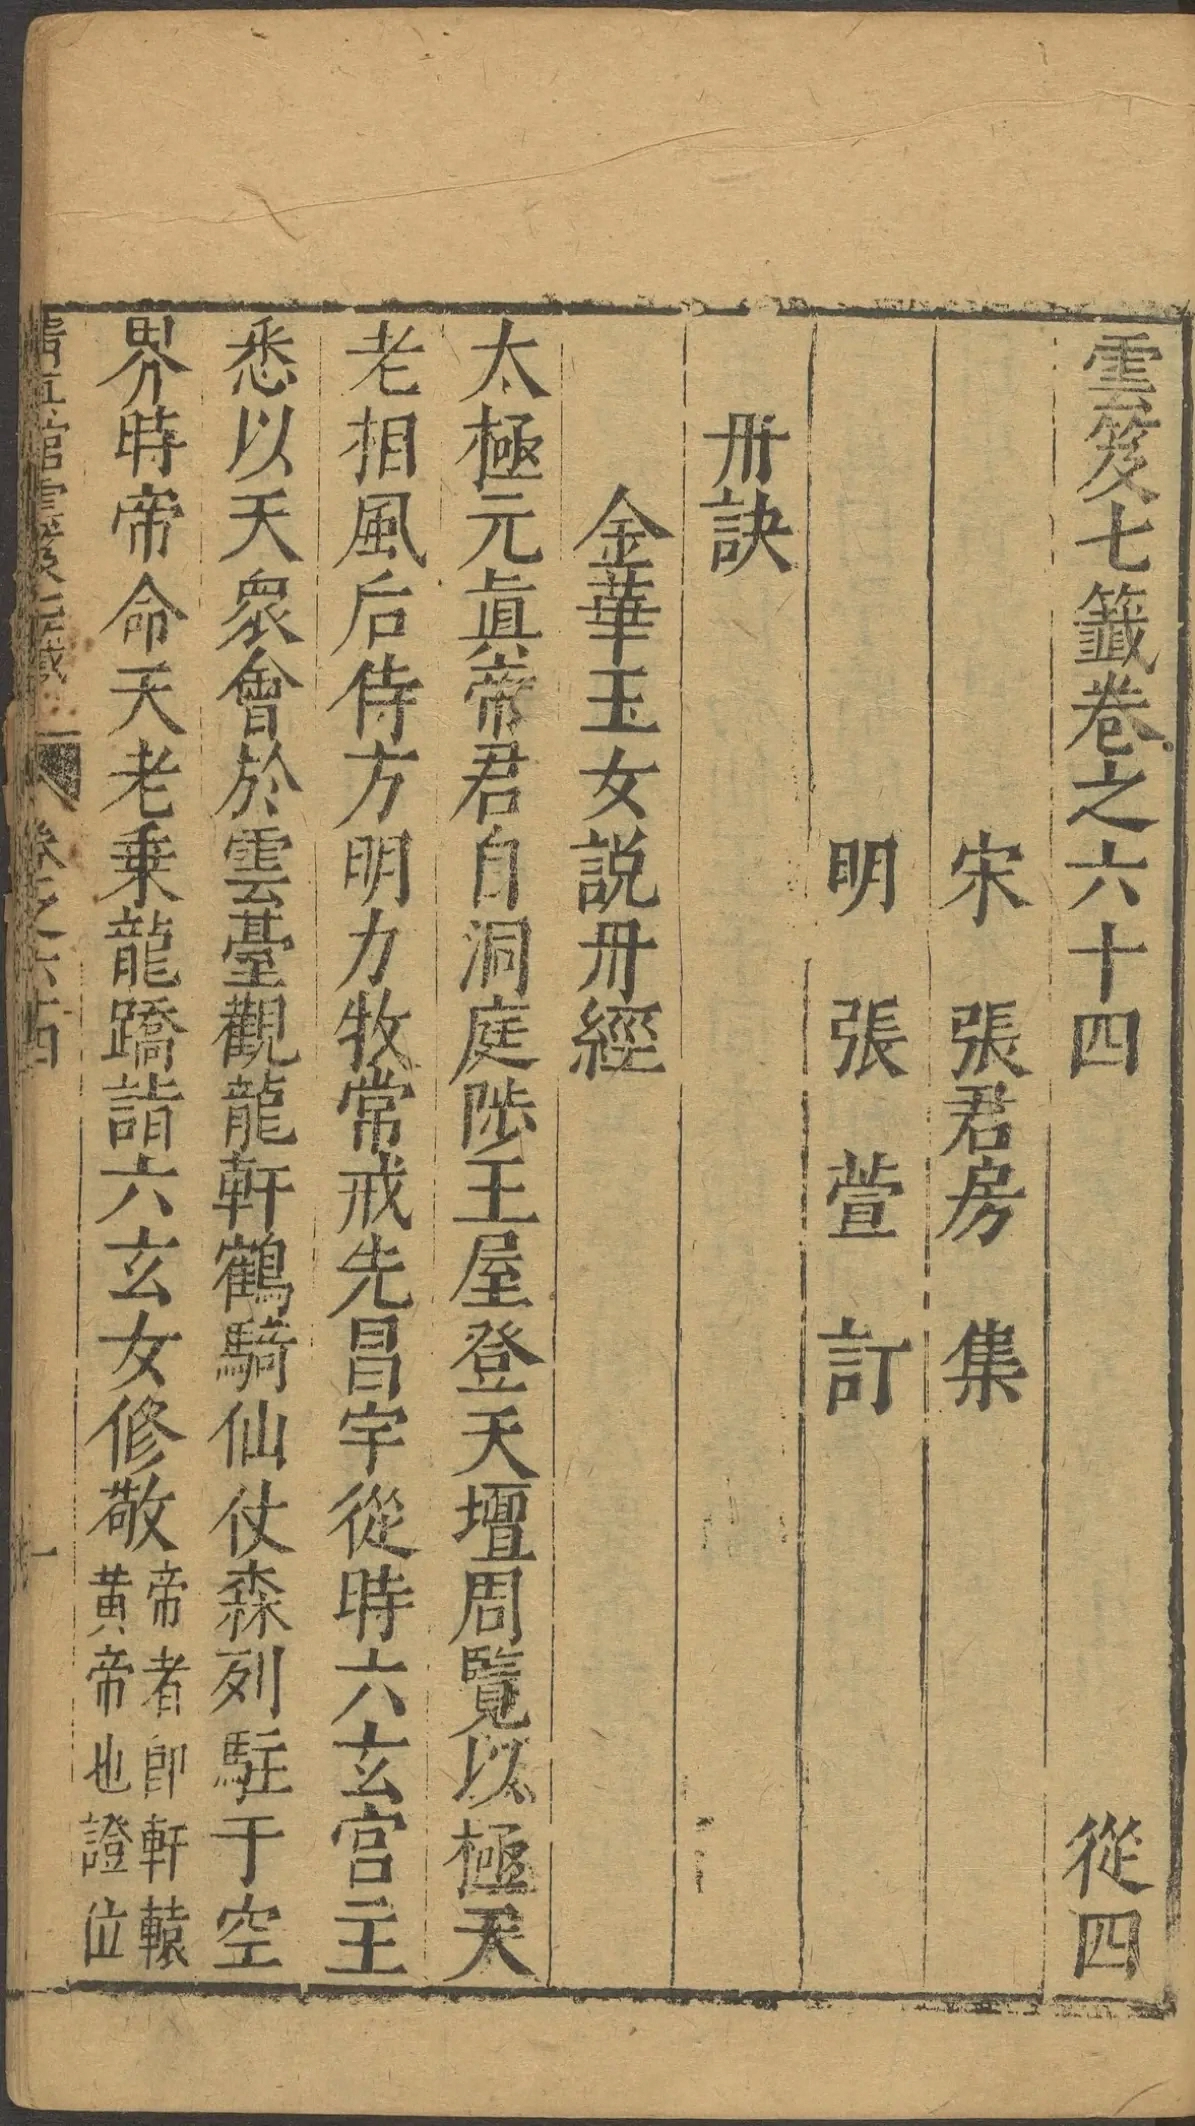 雲笈七籤卷之六十四 從四
宋 張君房 集
明 張萱 訂
丹訣
金華玉女說丹經
太極元眞帝君自洞庭陟王屋登天壇周覽以極天
老相風后侍方明力牧常戒先昌宇從時六玄宮主
悉以天衆會於雲臺觀龍軒鶴騎仙仗森列駐于空
界時帝命天老乘龍蹻詣六玄女修敬帝者即軒轅
黃帝也證位
清真館雲笈七籤 卷之六十四 一